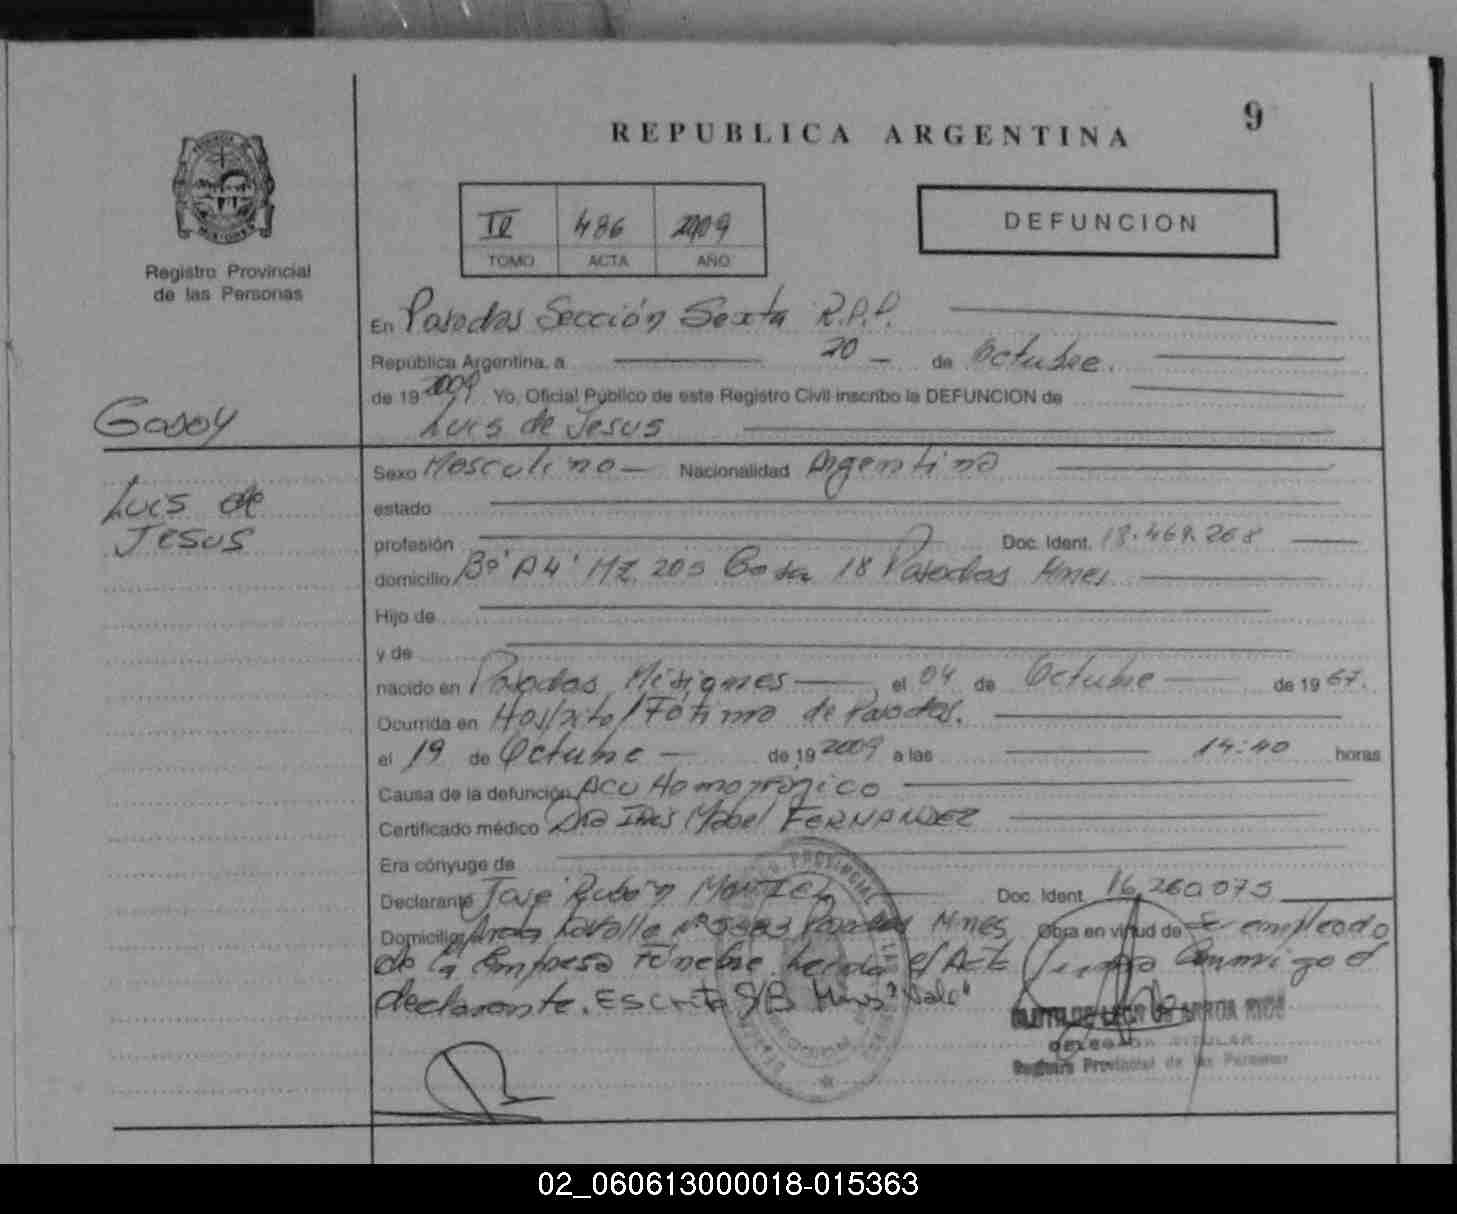 9
REPUBLICA ARGENTINA
486 2009
TOMO ACTA AÑO
DEFUNCION
Registro Provincial
de las Personas
En Posadas Sección Sexta R.P.P.
República Argentina, a 20 de Octubre.
de 19 2009 Yo, Oficial Público de este Registro Civil inscribo la DEFUNCION de
Luis de Jesus
Luis de
Jesus
Sexo Masculino Nacionalidad Argentina
estado
profesión Doc. Ident. 18.469.268
domicilio Bº A4 Mz 205 Casa 18 Posadas Mnes
Hijo de
y de
nacido en Posadas Misiones el 04 de Octubre de 19 67.
Ocurrida en Hospital Fátima de Posadas.
el 19 de Octubre de 19 2009 a las 14:40 horas
Causa de la defunción ACV
Certificado médico Dra Mabel FERNANDEZ
Era cónyuge de
Declarante José Rubén Doc. Ident. 16.260.075
Domicilio Lavalle Nº Posadas Mnes Obra en virtud de Ser empleado
de la Empresa Fúnebre Leida el Acta firma Conmigo el
declarante. Escrito S/B Mnes "Vale"
Registro Provincial de las Personas
02_060613000018-015363